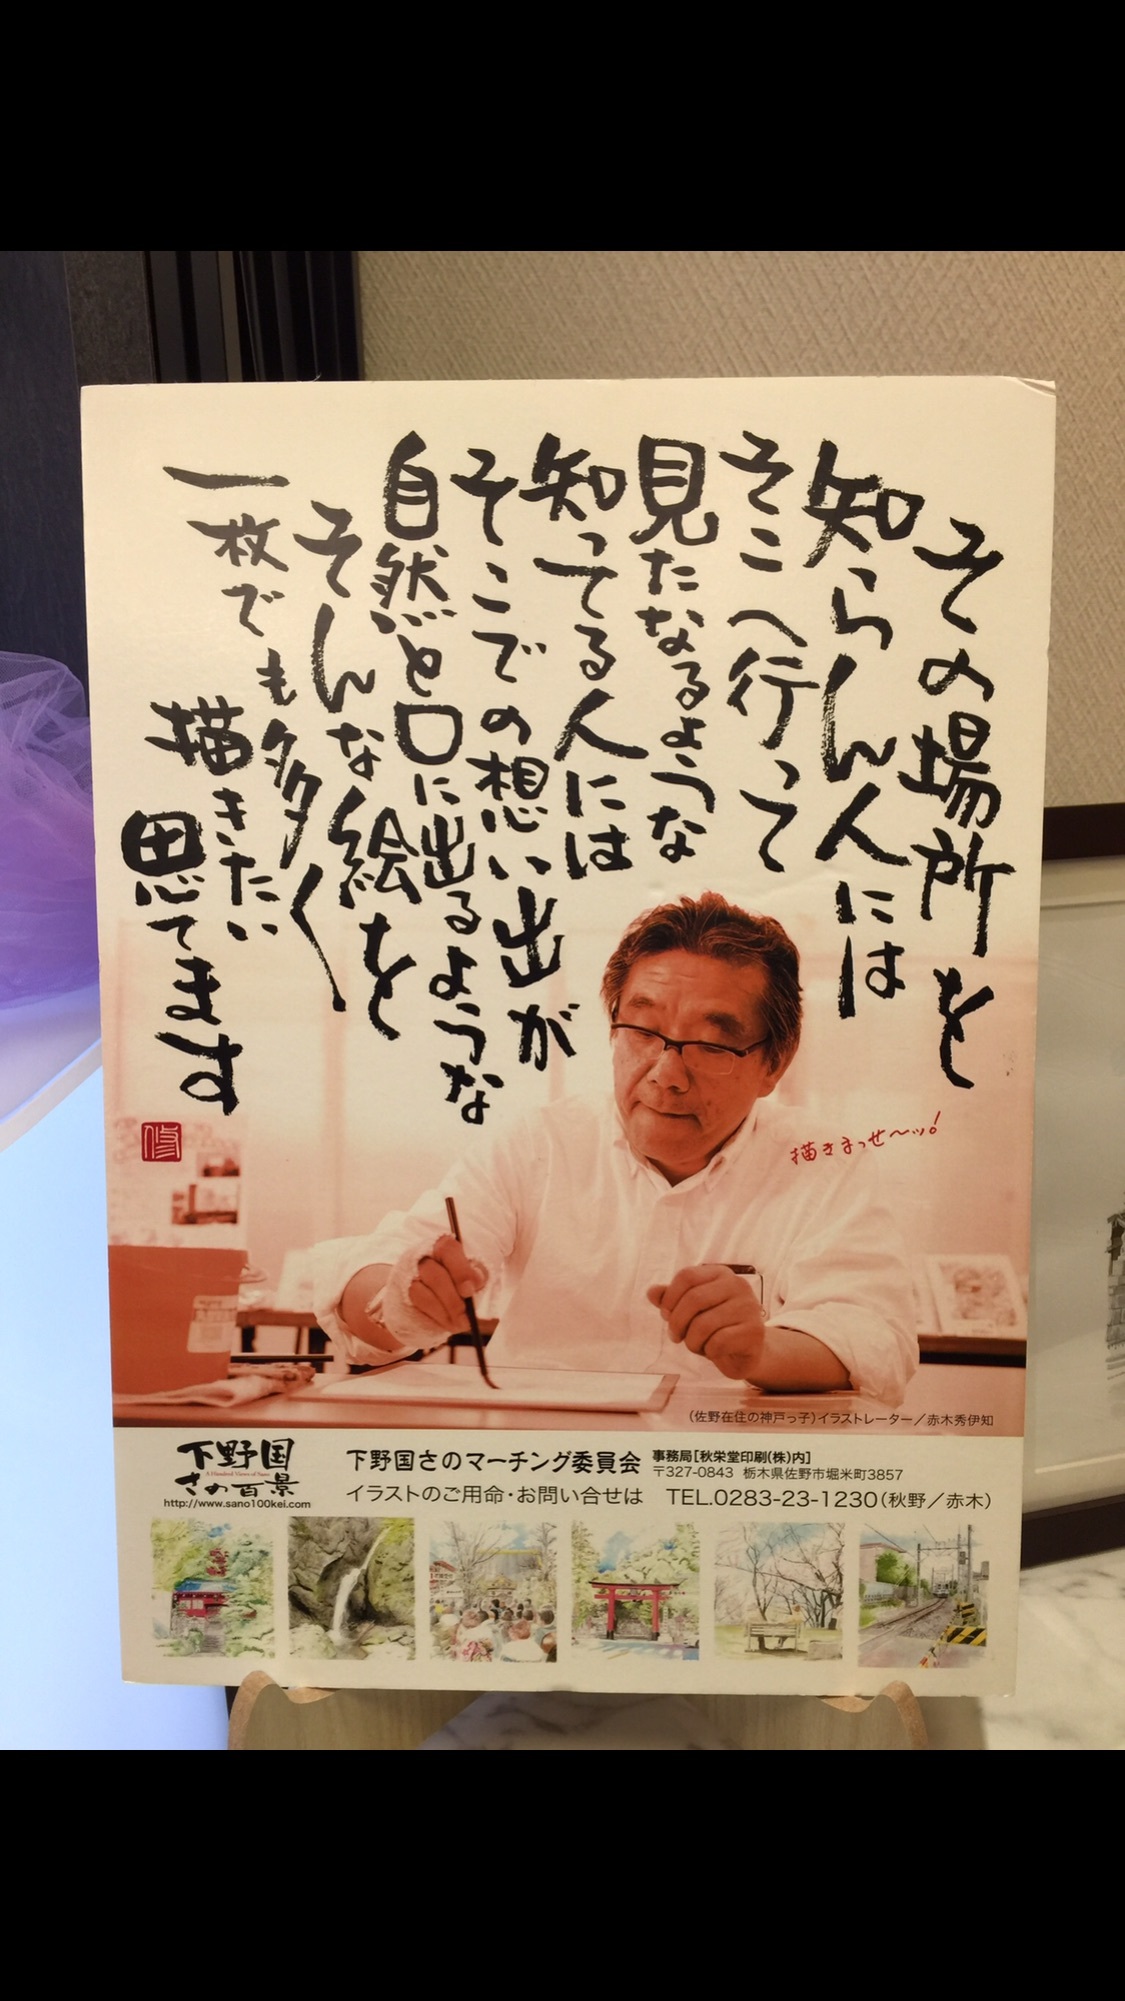 その場所を
知らん人には
そこへ行って
見たなるような
知ってる人には
そこでの想い出が
自然と口に出るような
そんな絵を
一枚でも多く
描きたい
思てます
修
描きまっせ〜ッ!
(佐野在住の神戸っ子)イラストレーター/赤木秀伊知
下野国
A Hundred Views of Sano
さの百景
http://www.sano100kei.com
下野国さのマーチング委員会
事務局[秋栄堂印刷(株)内]
〒327-0843 栃木県佐野市堀米町3857
イラストのご用命・お問い合せは TEL.0283-23-1230(秋野/赤木)